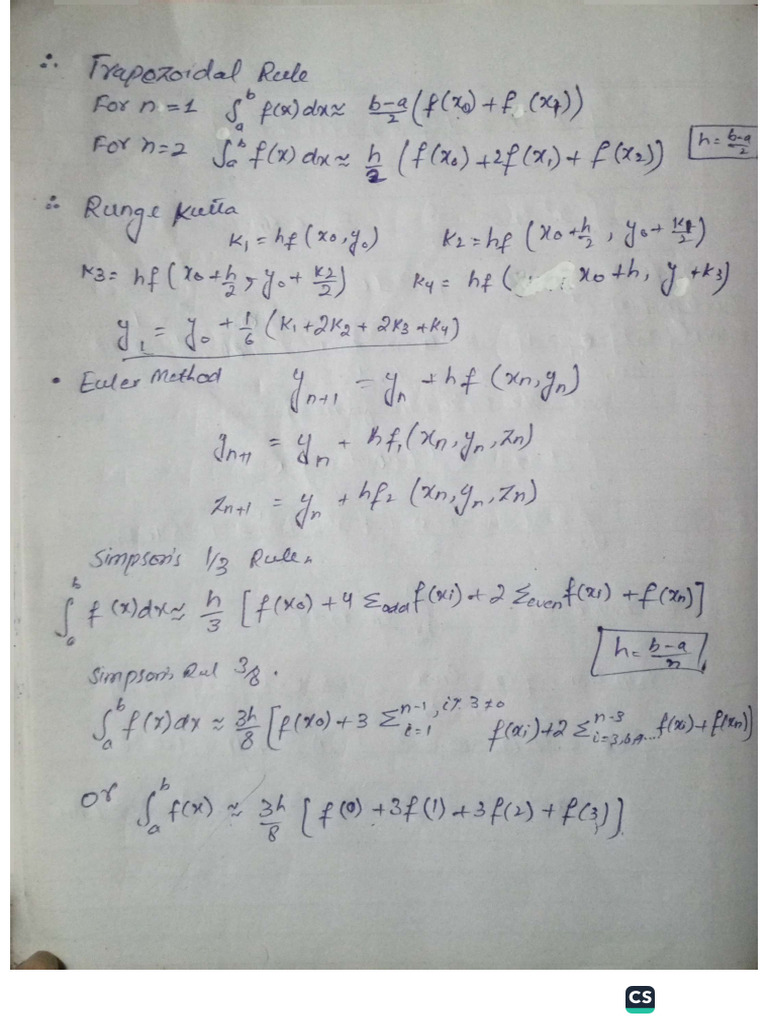 ∴ Trapezoidal Rule
For n=1 ∫_a^b f(x)dx ≈ b-a/2 (f(x₀)+f(x₁))
For n=2 ∫_a^b f(x)dx ≈ h/2 (f(x₀)+2f(x₁)+f(x₂)) h=b-a/2
∴ Runge Kutta
K₁=hf(x₀,y₀) K₂=hf(x₀+h/2, y₀+K₁/2)
K₃=hf(x₀+h/2, y₀+K₂/2) K₄=hf(x₀+h, y+K₃)
y₁=y₀+1/6(K₁+2K₂+2K₃+K₄)
• Euler Method y_{n+1}=y_n+hf(x_n,y_n)
y_{n+1}=y_n+hf₁(x_n,y_n,z_n)
z_{n+1}=y_n+hf₂(x_n,y_n,z_n)
Simpson's 1/3 Rule
∫_a^b f(x)dx≈h/3[f(x₀)+4Σ_odd f(xi)+2Σ_even f(xi)+f(x_n)]
h=b-a/n
Simpson's Rul 3/8.
∫_a^b f(x)dx≈3h/8[f(x₀)+3Σ_{i=1}^{n-1, i%3≠0} f(xi)+2Σ_{i=3,6,9...}^{n-3} f(xi)+f(x_n)]
or ∫_a^b f(x)≈3h/8[f(0)+3f(1)+3f(2)+f(3)]
CS